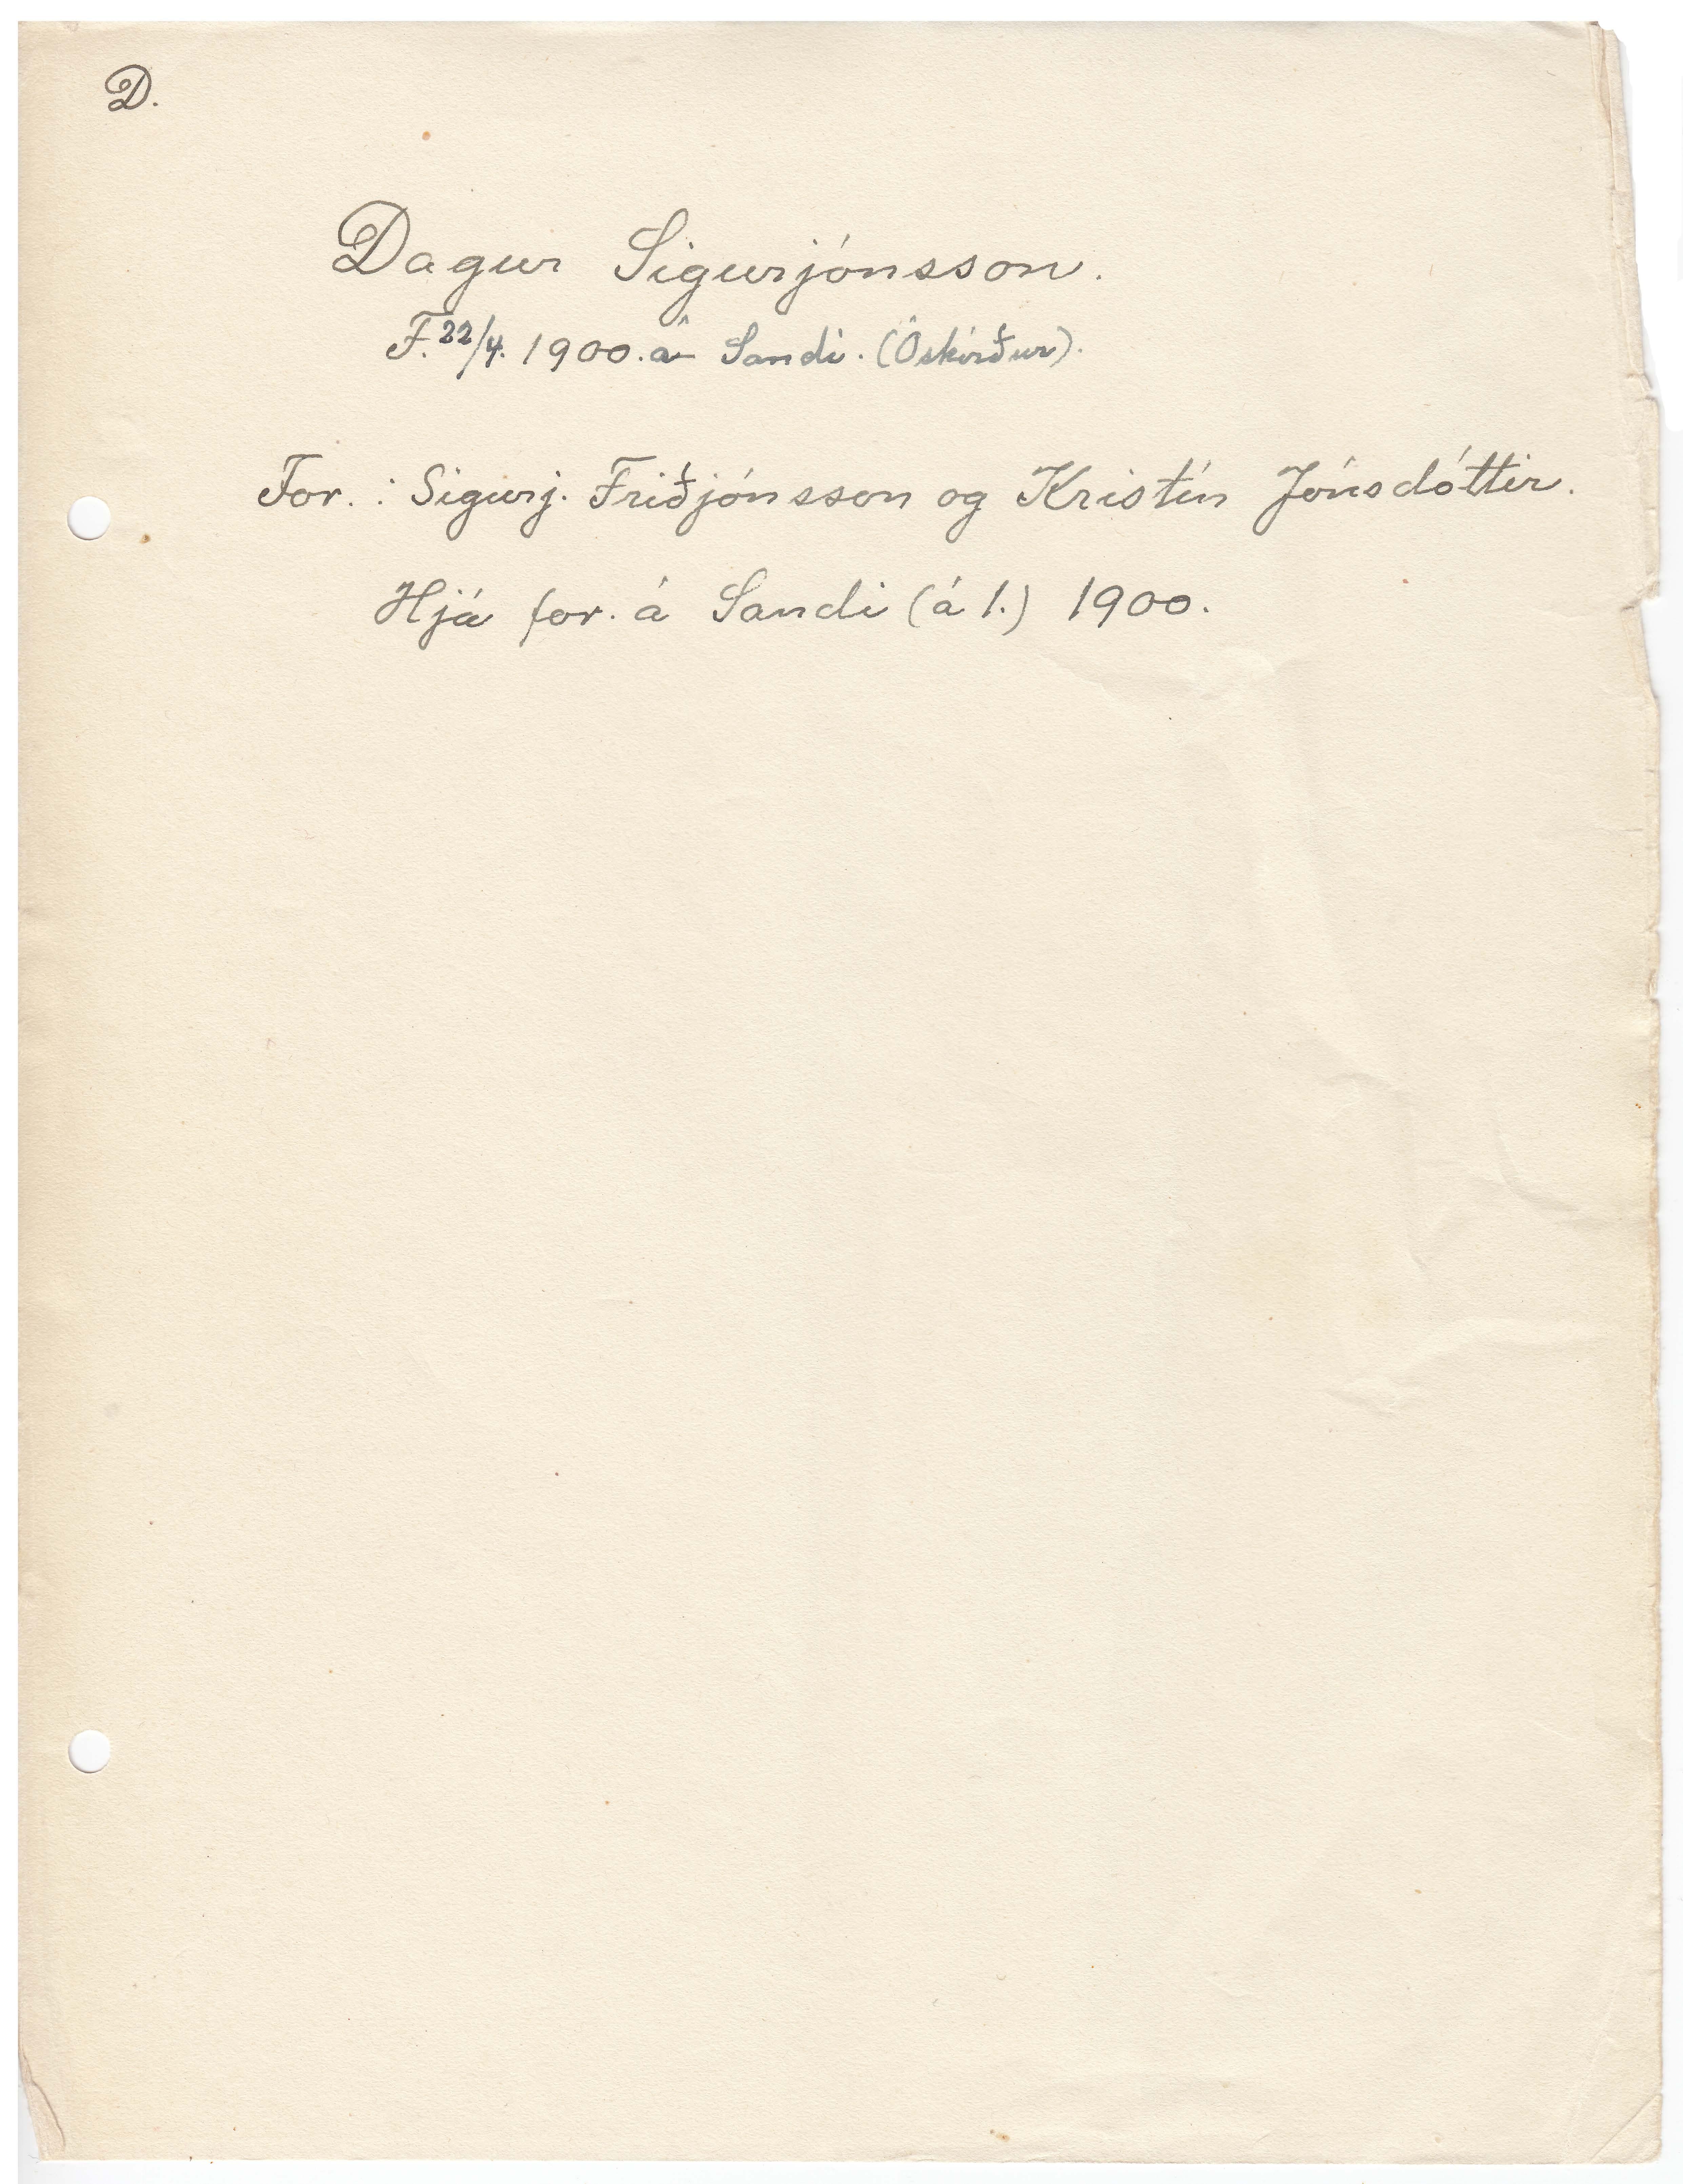 D.
Dagur Sigurjónsson.
F. 22/4. 1900. á Sandi. (Óskírður).
For. : Sigurj. Friðjónsson og Kristín Jónsdóttir.
Hjá for. á Sandi (á 1.) 1900.